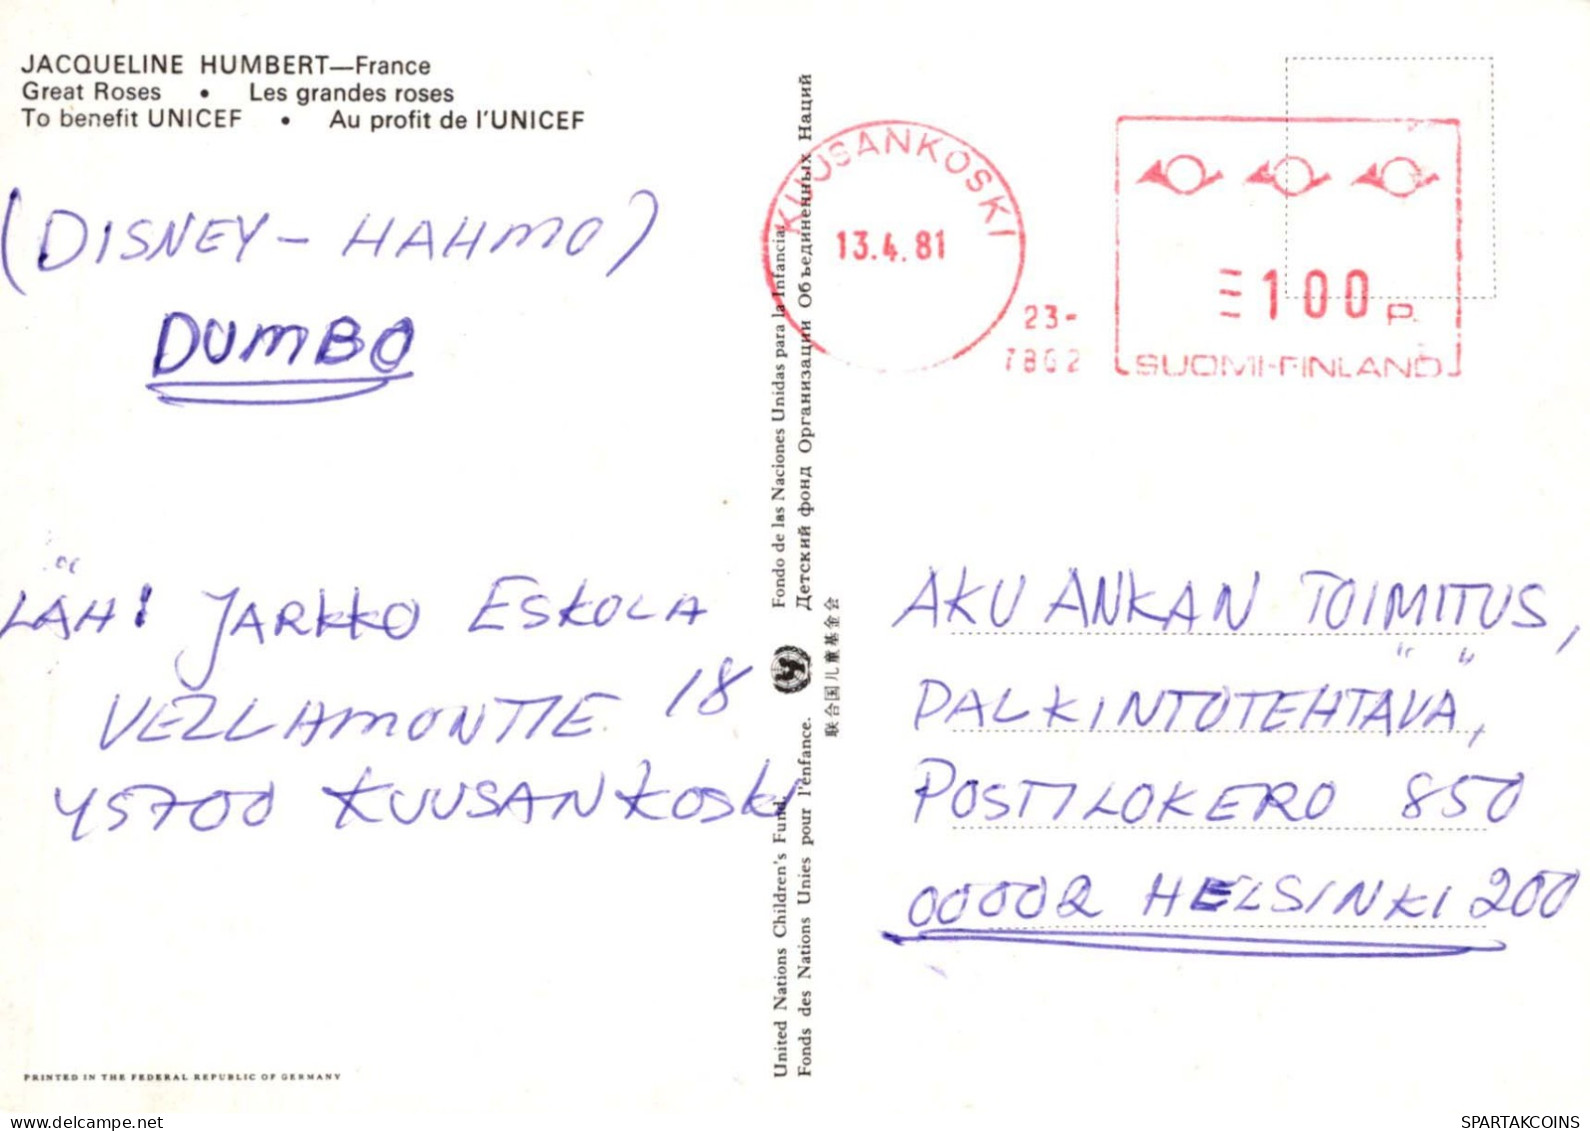 JACQUELINE HUMBERT—France
Great Roses • Les grandes roses
To benefit UNICEF • Au profit de l'UNICEF
(DISNEY - HAHMO)
DUMBO
LÄH! JARKKO ESKOLA
VELLAMONTIE 18
45700 KUUSANKOSKI
PRINTED IN THE FEDERAL REPUBLIC OF GERMANY
United Nations Children's Fund. Fondo de las Naciones Unidas para la Infancia.
Fonds des Nations Unies pour l'enfance. Детский фонд Организации Объединенных Наций
联合国儿童基金会
KUUSANKOSKI
13.4.81
23-
7862
100 P.
SUOMI-FINLAND
AKU ANKAN TOIMITUS,
PALKINTOTEHTÄVÄ,
POSTILOKERO 850
00002 HELSINKI 200
delcampe.net
SPARTAKCOINS